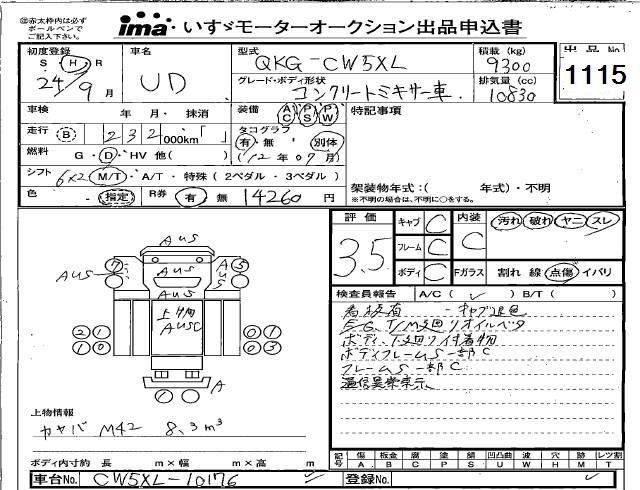 ※赤太枠内は必ず
ボールペンで
ご記入下さい。
ima いすゞモーターオークション出品申込書
初度登録 車名 型式 積載 (kg) 出品No
S H R UD QKG-CW5XL 9300
24年 9月 グレード・ボディ形状 排気量 (cc) 1115
コンクリートミキサー車. 10830
車検 年 月・抹消 装備 AC PS PW 特記事項
走行 B 232000km「 」 タコグラフ
有・無 別体
燃料 G・D・HV 他( ) (12年07月)
シフト 6x2 M/T・A/T・特殊(2ペダル・3ペダル)
架装物年式:( 年式)・不明
色 ・指定 R券 有 無 14260円 ※不明の場合は、不明に○をする。
評価 キャブ C 内装 汚れ 破れ ヤニ スレ
3.5 フレーム C C
ボディ C Fガラス 割れ 線 点傷 イバリ
検査員報告 A/C( ✓ ) B/T( )
看板有 -キャブ退色
EG,T/M廻りオイルベタ
ボディ、下廻り付着物
ボディフレームS一部C
フレームS一部C
通信異常表示
AUS
AUS 7 AUS 5
AUS
A
上物向
AUSC
2 1 0 1
1 0 0 3
A
1
上物情報
カヤバ M42 8.3m³
ボディ内寸約 長 m×幅 m×高 m
記号 傷 板金 腐 塗 錆 凹凸曲 波 穴 跡 レツ割
A. B. C. P. S. U. W. H. M. T
車台No. CW5XL-10176 登録No.